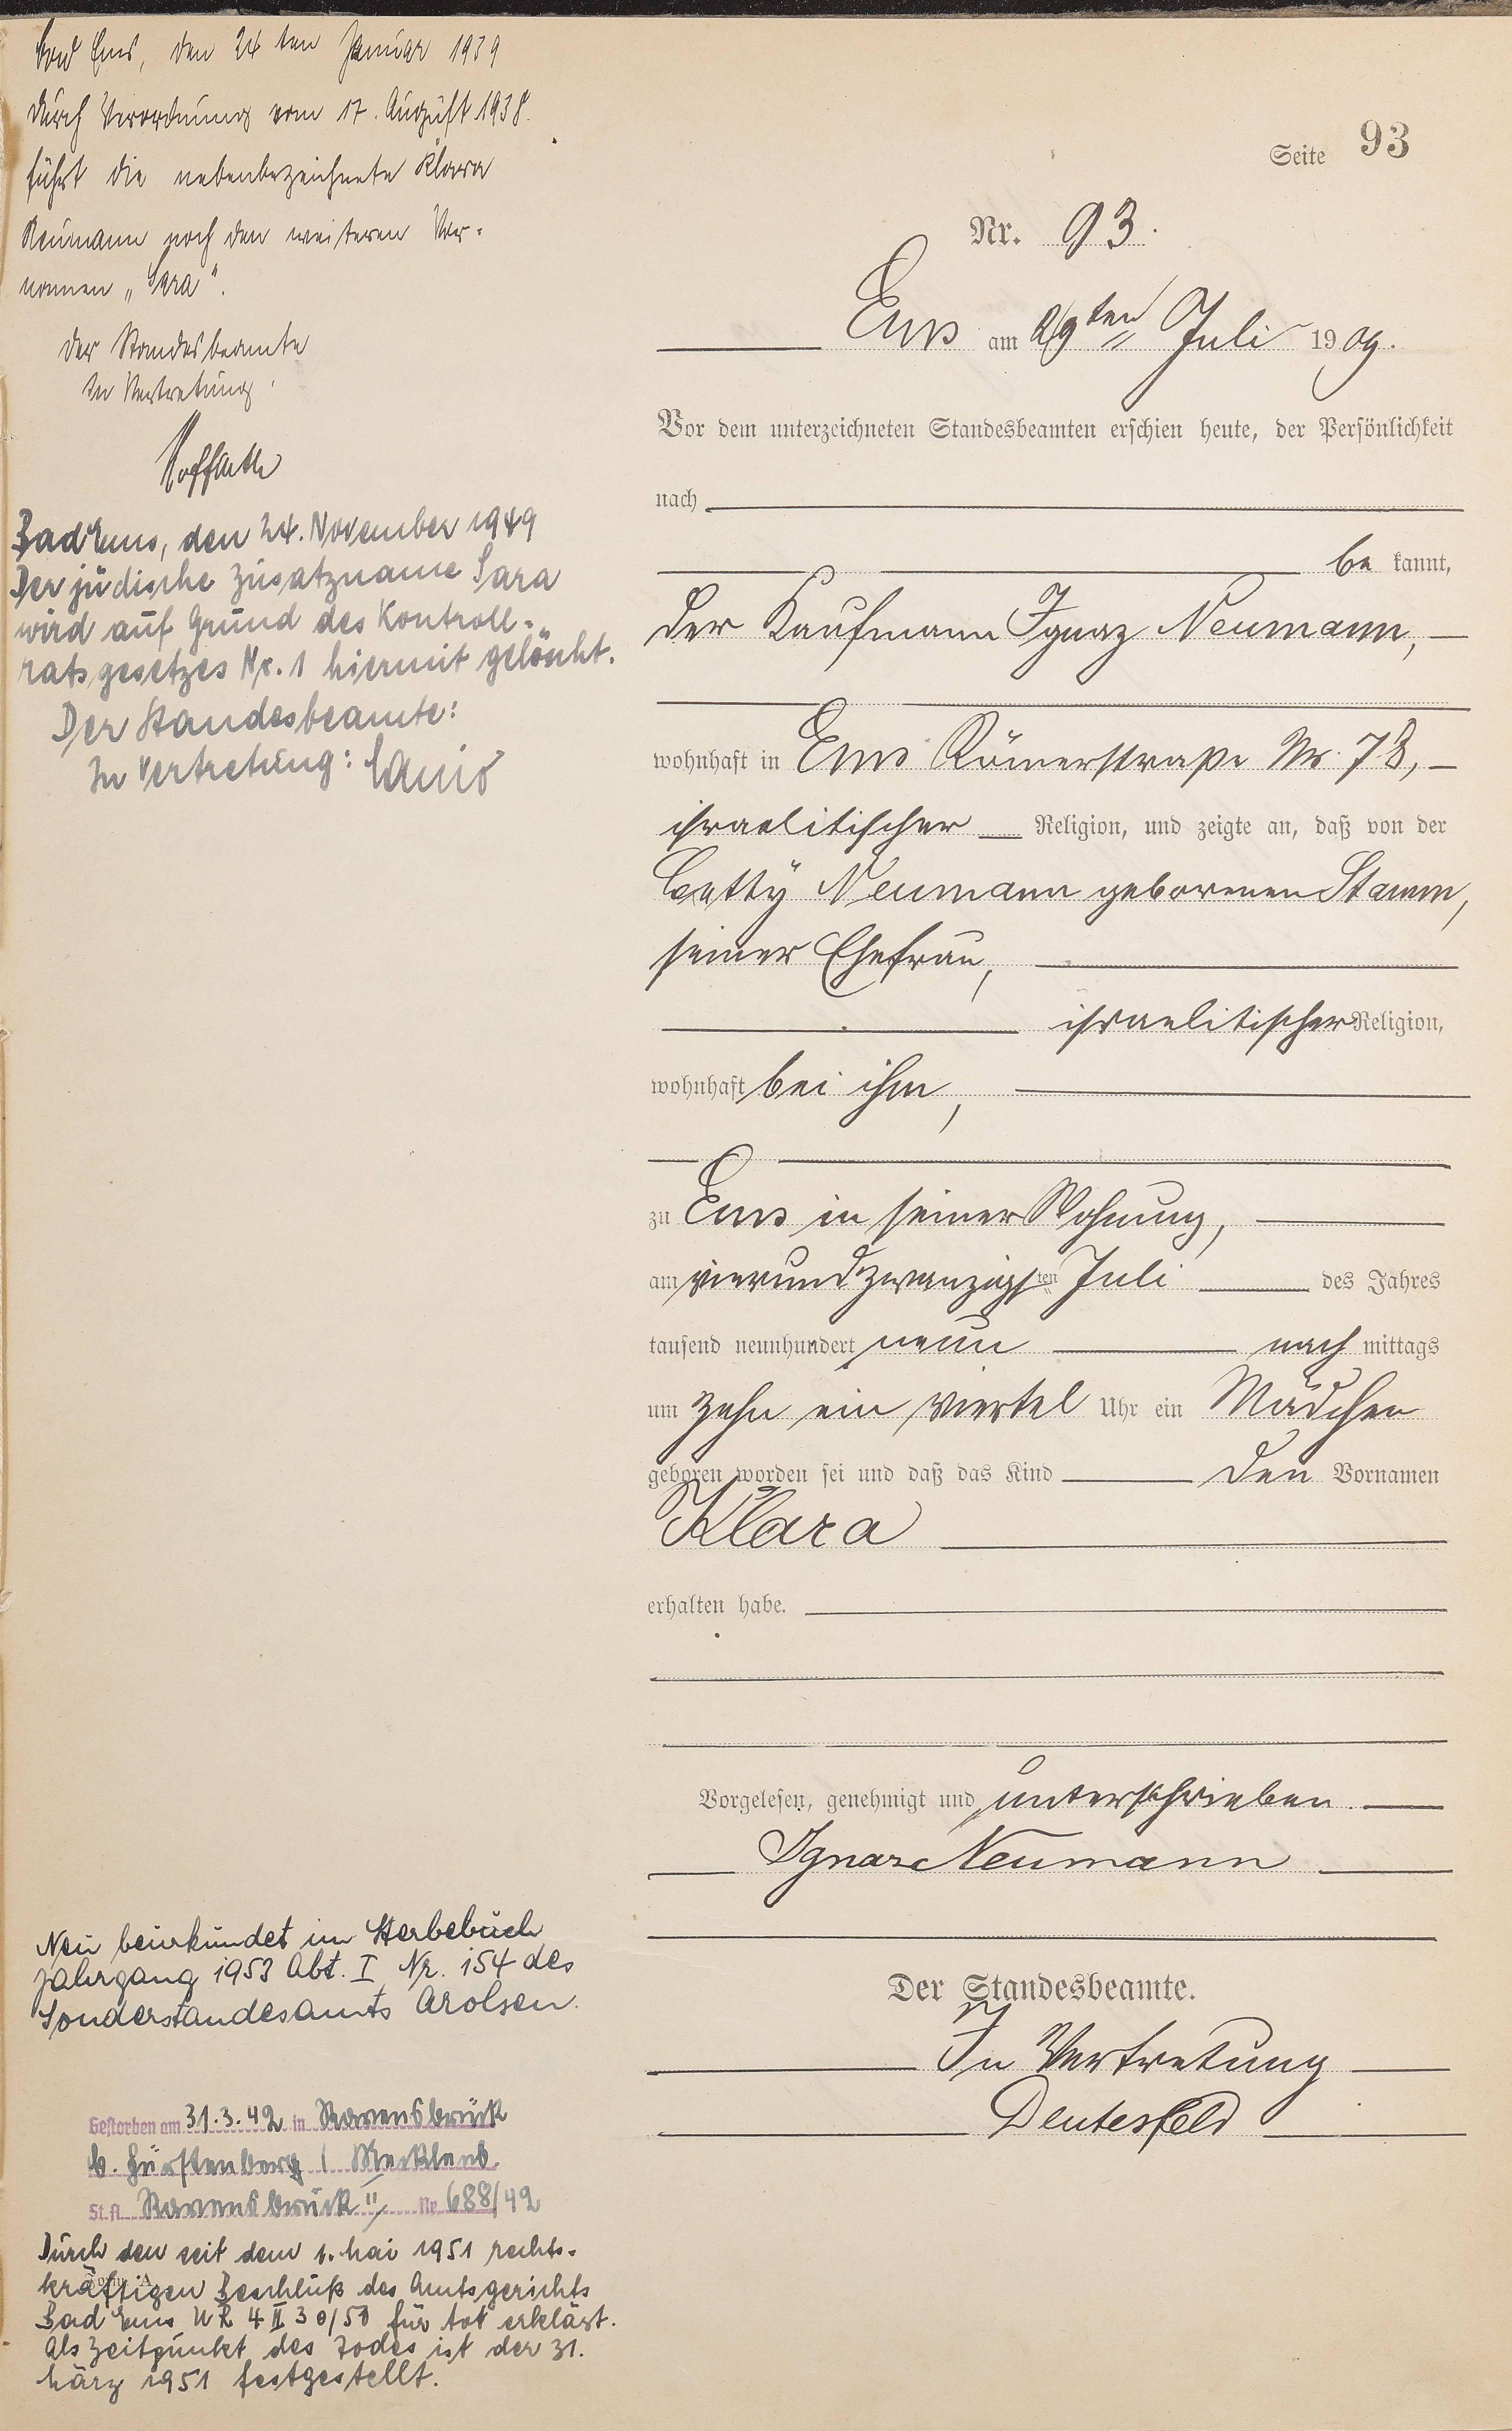 Bad Ems, den 24ten Januar 1939
Durch Verordnung vom 17. August 1938.
führt die nebenbezeichnete Klara
Neumann noch den weiteren Vor-
namen „Sara“.
Der Standesbeamte
In Vertretung
Bad Ems, den 24. November 1949
Der jüdische Zusatzname Sara
wird auf Grund des Kontroll-
ratsgesetzes Nr. 1 hiermit gelöscht.
Der Standesbeamte:
In Vertretung:
Neu beurkundet im Sterbebuch
Jahrgang 1953 Abt. I Nr. 154 des
Sonderstandesamts Arolsen.
Gestorben am 31.3.42 in Ravensbrück
b. Fürstenberg / Mecklenb.
St.A. Ravensbrück II Nr. 688/42
Durch den seit dem 1. Mai 1951 rechts-
kräftigen Beschluß des Amtsgerichts
Bad Ems UR 4 II 30/50 für tot erklärt.
Als Zeitpunkt des Todes ist der 31.
März 1951 festgestellt.
Seite 93
Nr. 93.
Ems am 29ten Juli 1909.
Vor dem unterzeichneten Standesbeamten erschien heute, der Persönlichkeit
nach
be kannt,
der Kaufmann Ignaz Neumann,
wohnhaft in Ems Römerstraße Nr. 78,
israelitischer Religion, und zeigte an, daß von der
Betty Neumann geborenen Stamm,
seiner Ehefrau,
israelitischer Religion,
wohnhaft bei ihm,
zu Ems in seiner Wohnung,
am vierundzwanzigsten Juli des Jahres
tausend neunhundert neun nach mittags
um zehn ein viertel Uhr ein Mädchen
geboren worden sei und daß das Kind den Vornamen
Klara
erhalten habe.
Vorgelesen, genehmigt und unterschrieben.
Ignaz Neumann
Der Standesbeamte.
In Vertretung
Deutesfeld